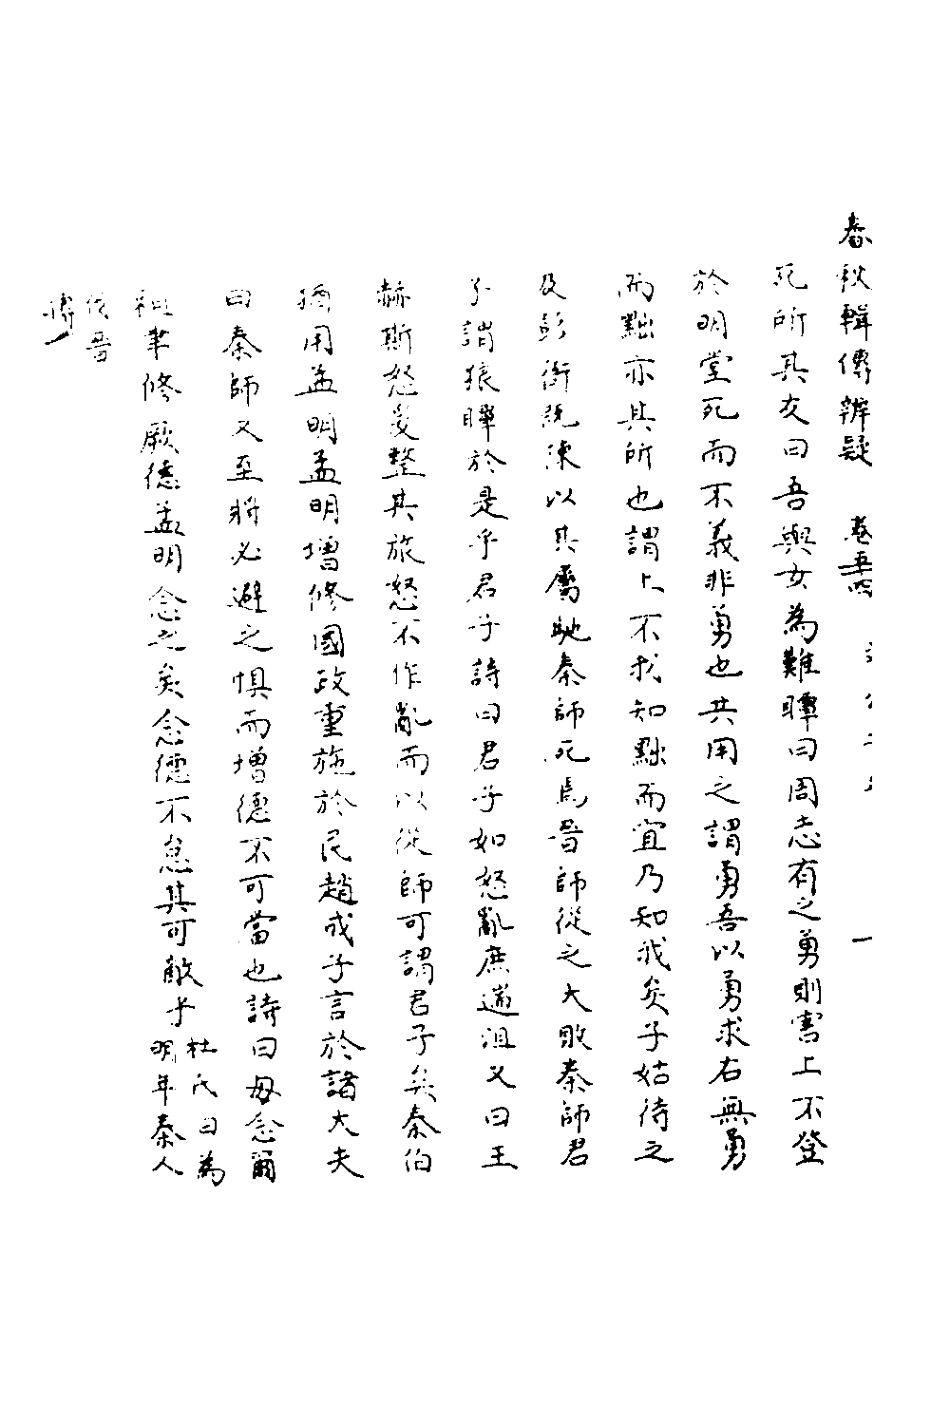 春秋輯傳辨疑 卷五四 一
死所其友曰吾與女為難瞫曰周志有之勇則害上不登
於明堂死而不義非勇也共用之謂勇吾以勇求右無勇
而黜亦其所也謂上不我知黜而宜乃知我矣子姑待之
及彭衙既陳以其屬馳秦師死焉晉師從之大敗秦師君
子謂狼瞫於是乎君子詩曰君子如怒亂庶遄沮又曰王
赫斯怒爰整其旅怒不作亂而以從師可謂君子矣秦伯
猶用孟明孟明增修國政重施於民趙成子言於諸大夫
曰秦師又至將必避之懼而增德不可當也詩曰毋念爾
祖聿修厥德孟明念之矣念德不怠其可敵乎
杜氏曰為
明年秦人
伐晉
傳